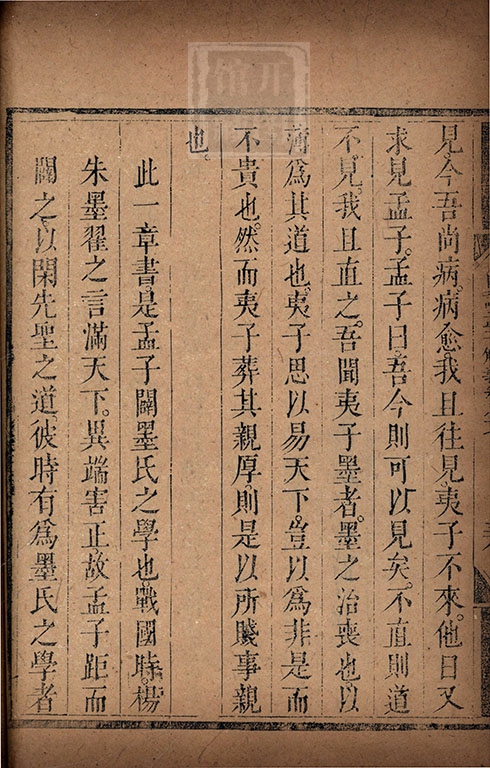 見。今吾尚病。病愈。我且往見。夷子不來。他日又
求見孟子。孟子曰。吾今則可以見矣。不直則道
不見。我且直之。吾聞夷子墨者。墨之治喪也。以
薄爲其道也。夷子思以易天下。豈以爲非是而
不貴也。然而夷子葬其親厚。則是以所賤事親
也。
此一章書。是孟子闢墨氏之學也。戰國時。楊
朱墨翟之言滿天下。異端害正。故孟子距而
闢之。以閑先聖之道。彼時有爲墨氏之學者